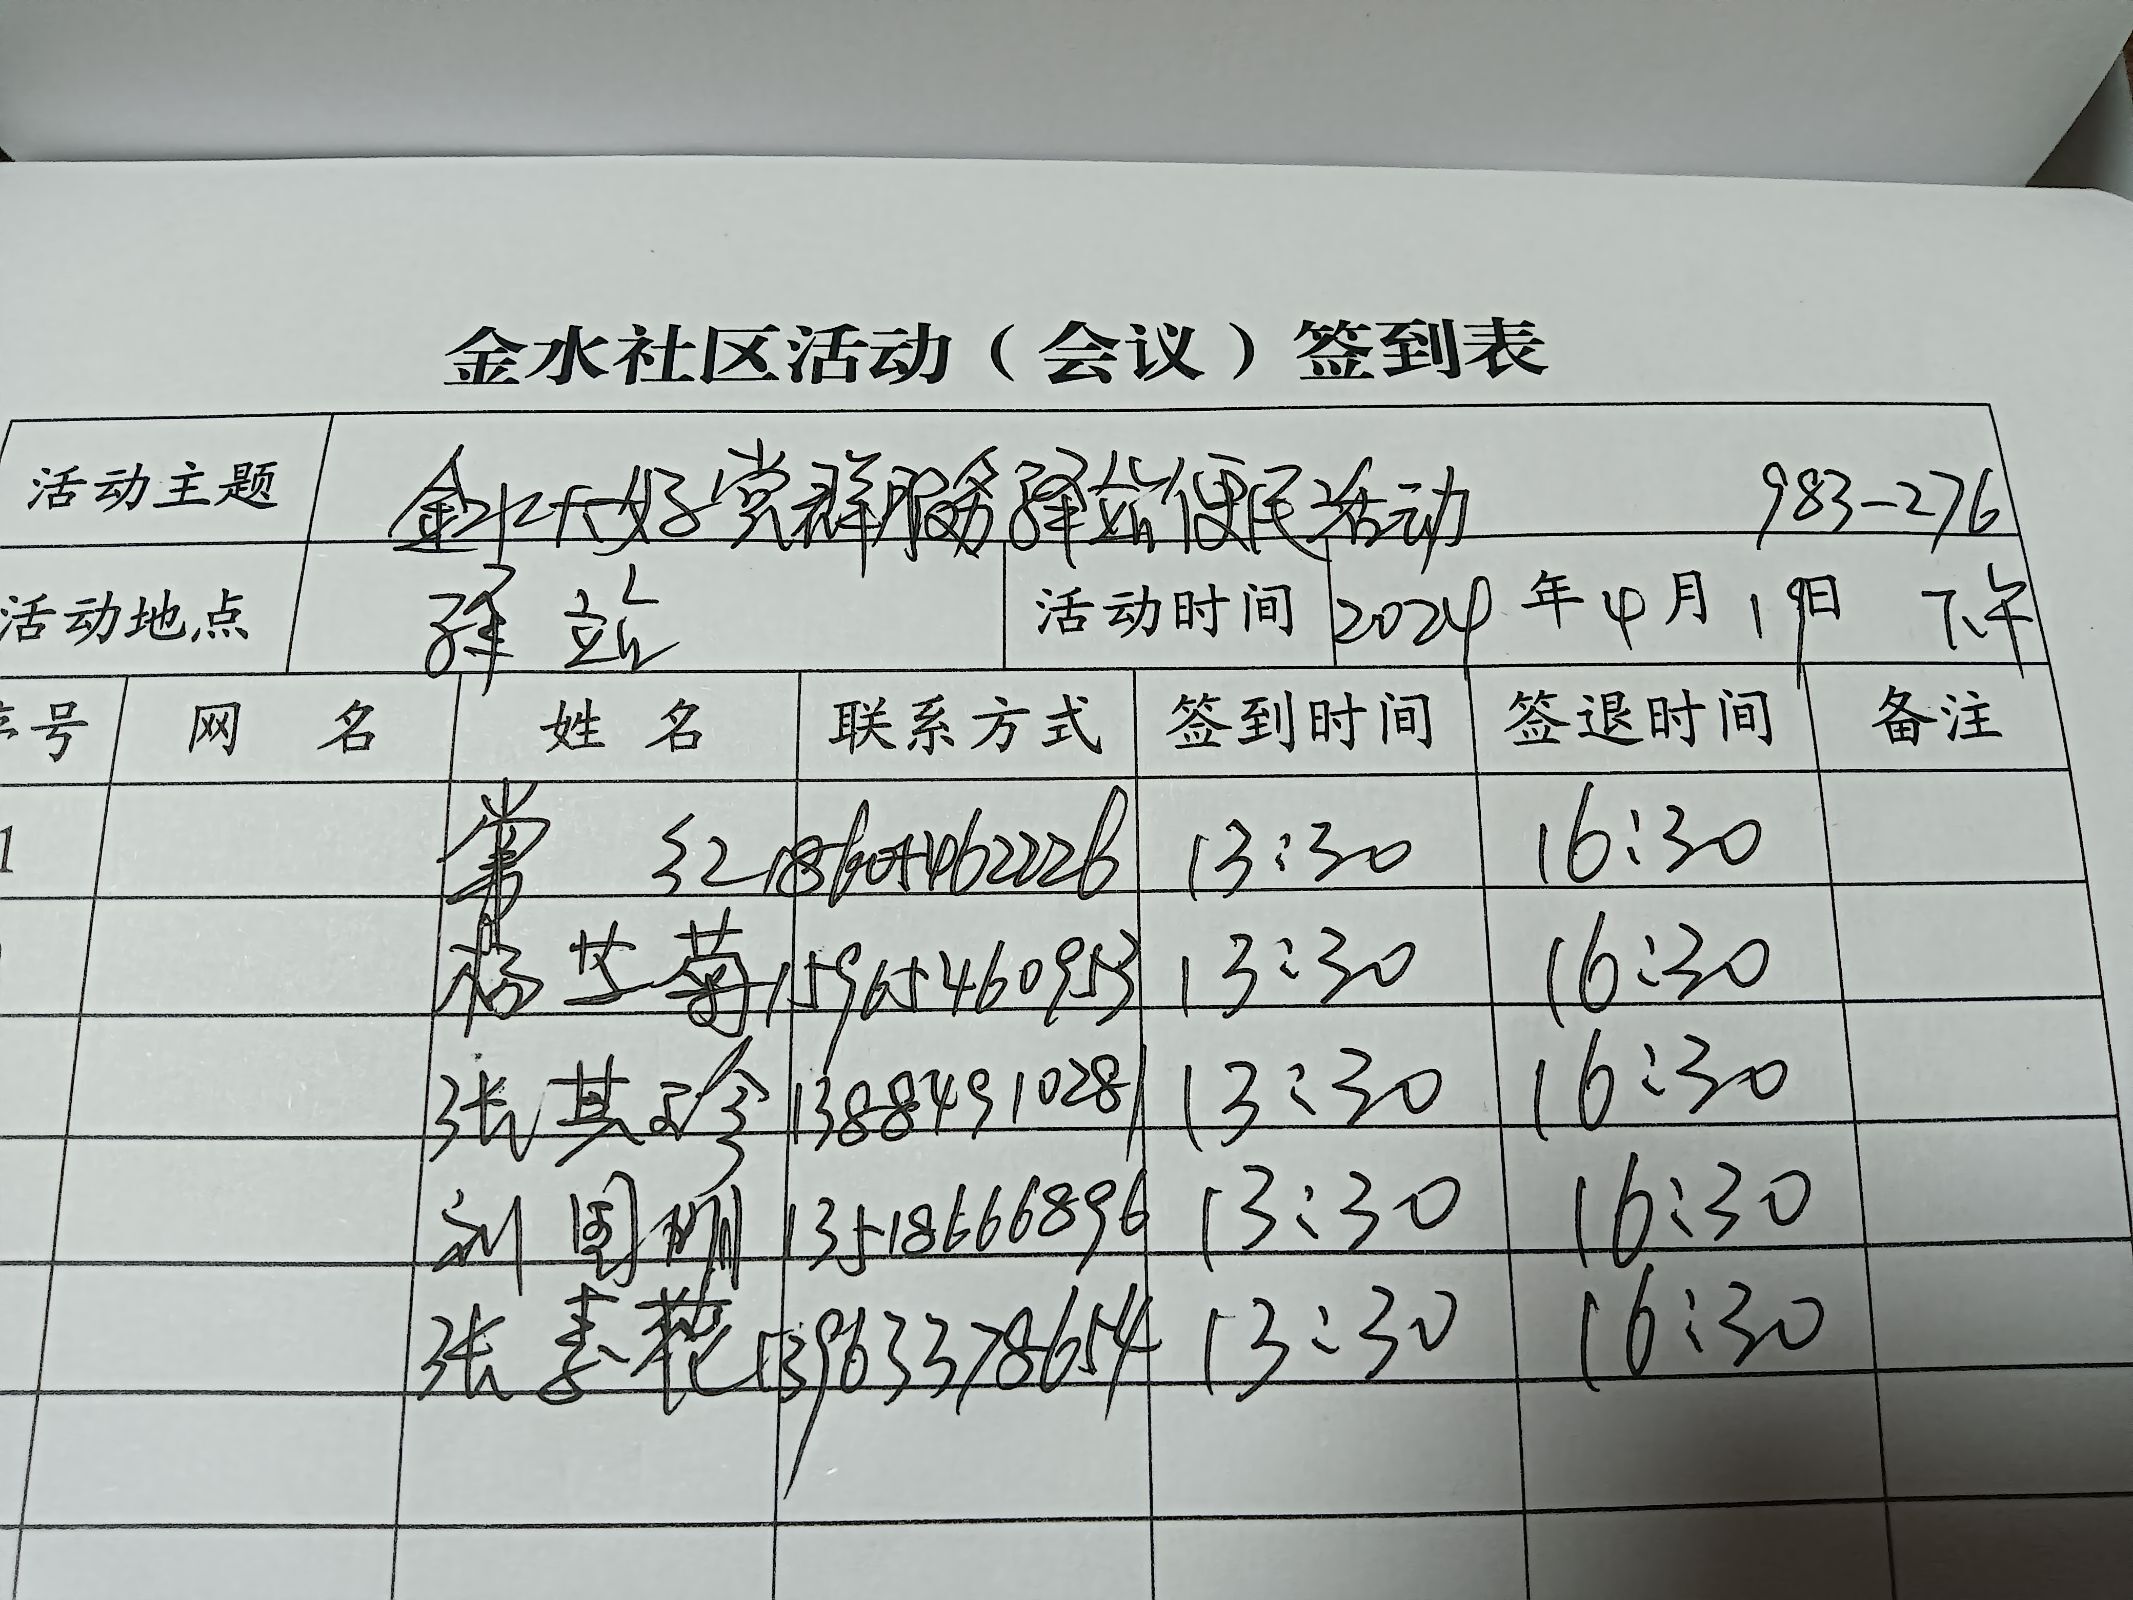 金水社区活动（会议）签到表
活动主题 金水大好党群服务驿站便民活动 983-276
活动地点 驿站 活动时间 2024年4月19日 下午
序号 网名 姓名 联系方式 签到时间 签退时间 备注
1 常红 18605462226 13:30 16:30
杨芝菊 15965460953 13:30 16:30
张其珍 13884910281 13:30 16:30
刘 13518666896 13:30 16:30
张素花 13963378654 13:30 16:30